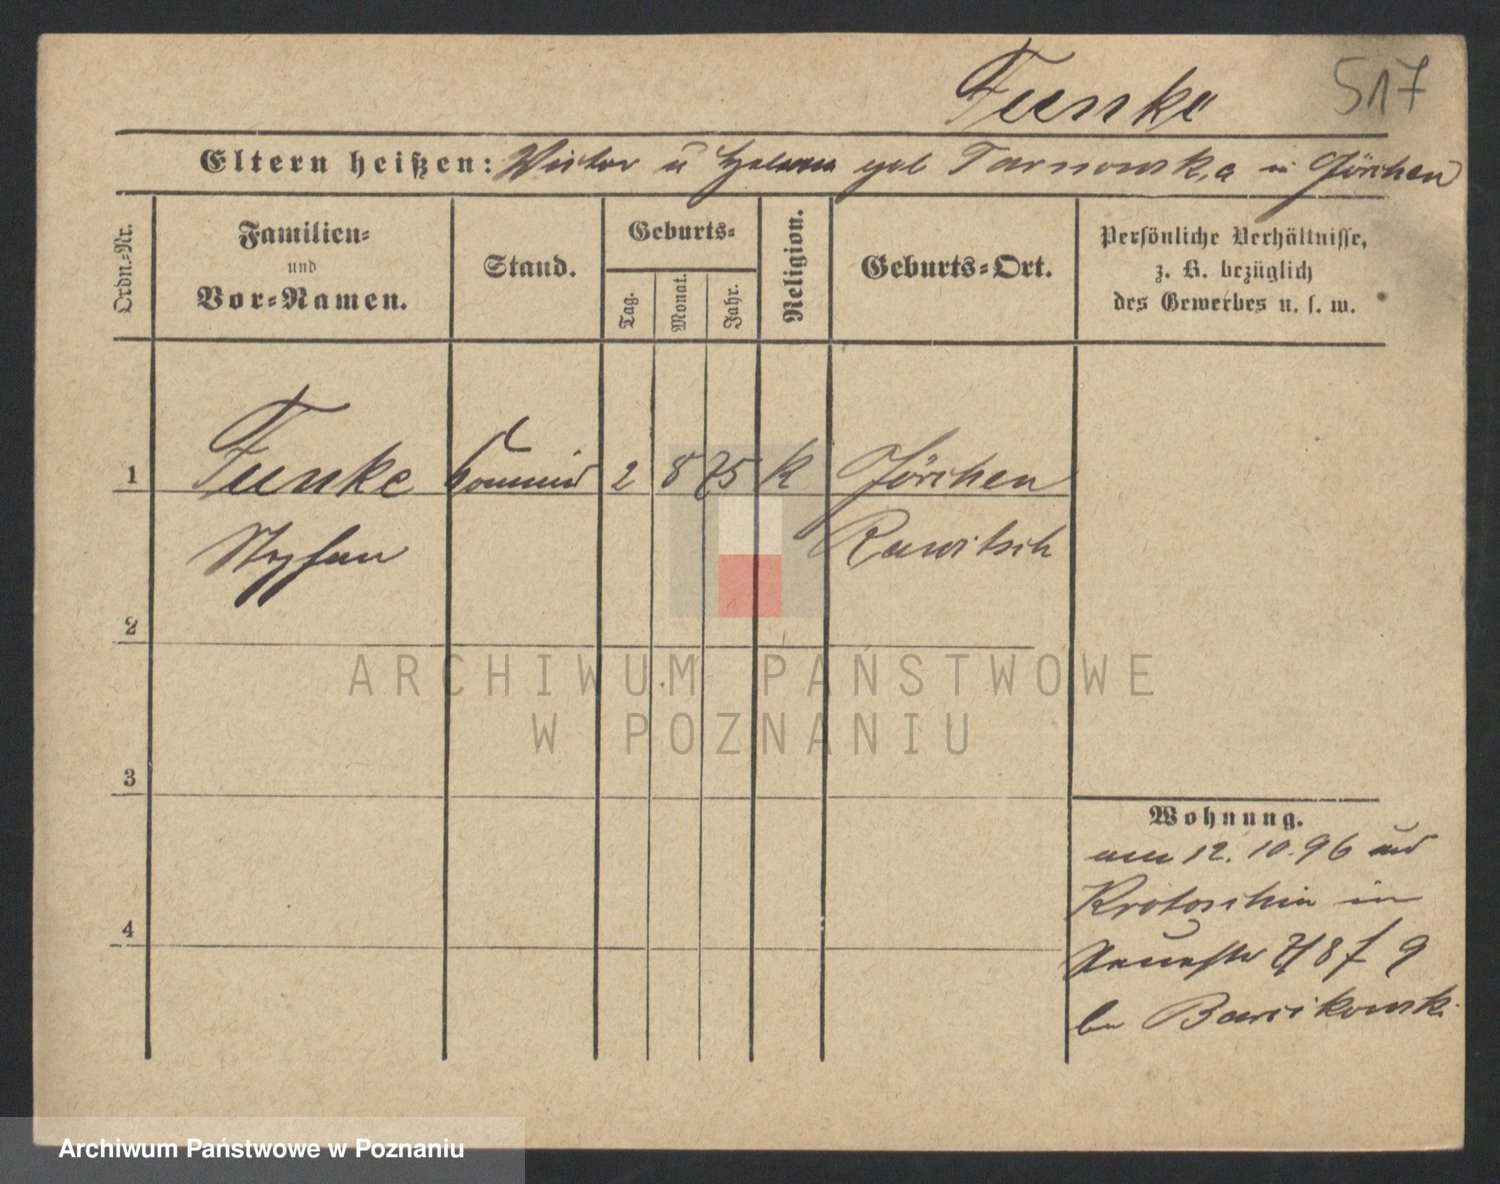 Funke 517
Eltern heißen: Victor u Helena geb Tarnowska in Görchen
Ordn.-Nr.
Familien-
und
Vor-Namen.
Stand.
Geburts-
Tag. Monat. Jahr.
Religion.
Geburts-Ort.
Persönliche Verhältnisse,
z. B. bezüglich
des Gewerbes u. s. w.
1 Funke Commis 2 8 75 K Görchen
Stefan Rawitsch
2
3
4
Wohnung.
am 12. 10. 96 aus
Krotoschin in
7/8
ARCHIWUM PAŃSTWOWE
W POZNANIU
Archiwum Państwowe w Poznaniu